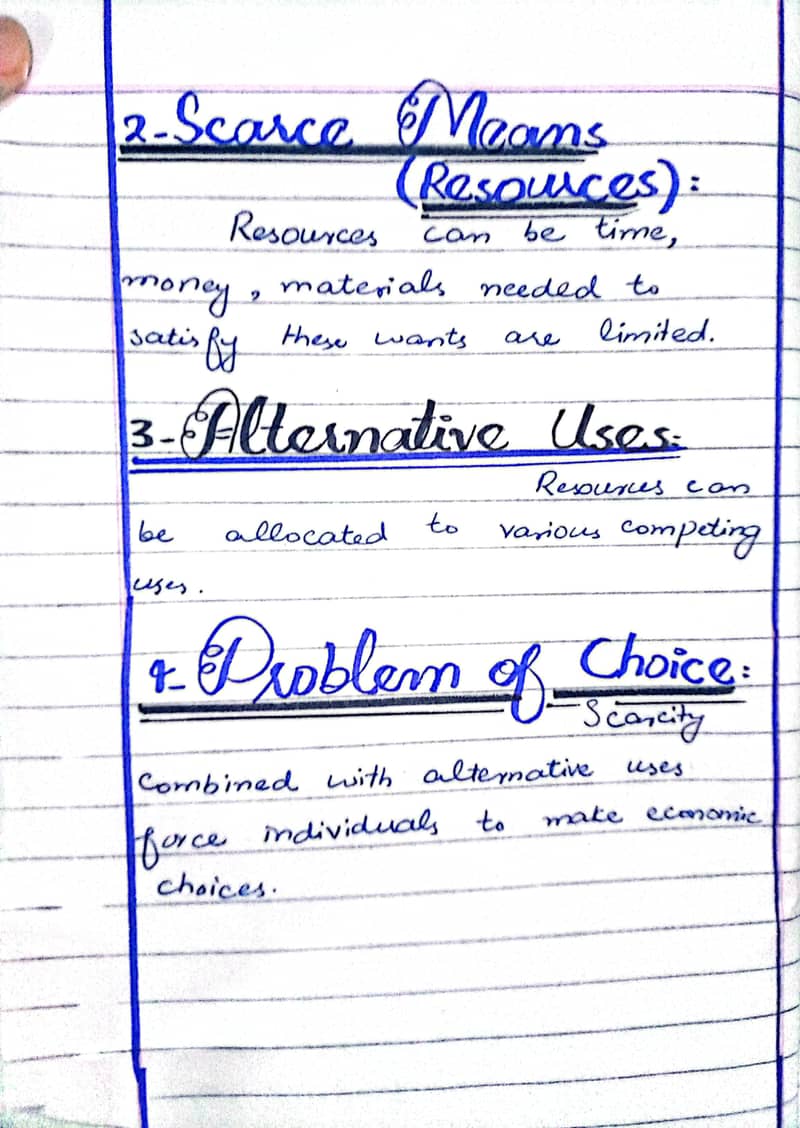 2-Scarce Means
(Resources):
Resources can be time,
money, materials needed to
satisfy these wants are limited.
3-Alternative Uses:
Resources can
be allocated to various competing
uses.
4-Problem of Choice:
Scarcity
Combined with alternative uses
force individuals to make economic
choices.